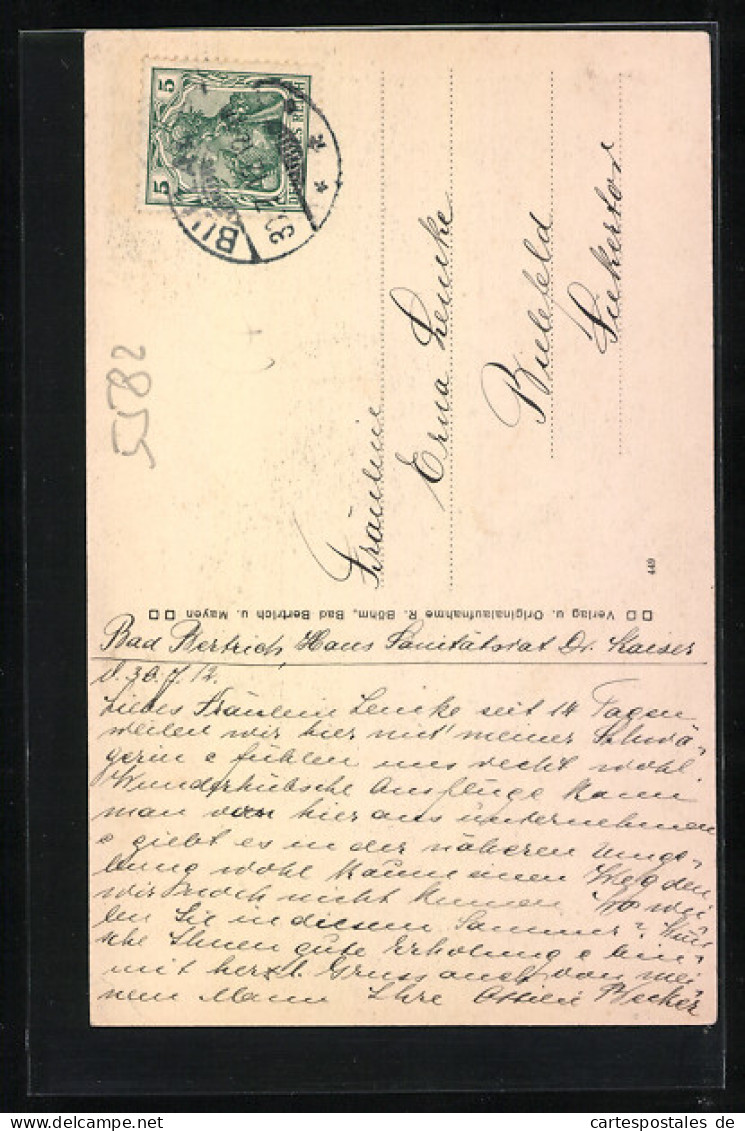 5
5
DEUTSCHES REICH
30.7.
5582
Fräulein
Erna Lencke
Bielefeld
Siekertor
449
Verlag u. Originalaufnahme R. Böhm, Bad Bertrich u. Mayen
Bad Bertrich, Haus Sanitätsrat Dr. Kaiser
d. 30.7.12.
Liebes Fräulein Lencke seit 14 Tagen
weilen wir hier mit meiner Schwä-
gerin & fühlen uns recht wohl.
Wunderhübsche Ausflüge kann
man von hier aus unternehmen
& giebt es in der näheren Umge-
bung wohl kaum einen Weg den
wir noch nicht kennen. Wo wei
len Sie in diesem Sommer? Wün
sche Ihnen gute Erholung & bin
mit herzl. Gruss auch von mei
nem Mann Ihre Becker
delcampe.net
cartespostales de